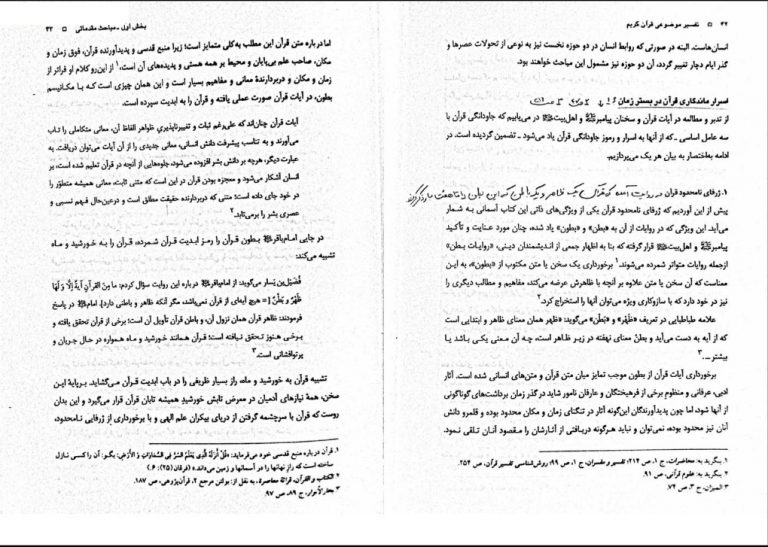 ۴۲ □ تفسیر موضوعی قرآن کریم
انسان‌هاست. البته در صورتی که روابط انسان در دو حوزه نخست نیز به نوعی از تحولات عصرها و
گذر ایام دچار تغییر گردد، آن دو حوزه نیز مشمول این مباحث خواهند بود.
اسرار ماندگاری قرآن در بستر زمان
از تدبر و مطالعه در آیات قرآن و سخنان پیامبرﷺ و اهل‌بیت‌ﷺ در می‌یابیم که جاودانگی قرآن با
سه عامل اساسی ـ که از آنها به اسرار و رموز جاودانگی قرآن یاد می‌شود ـ تضمین گردیده است. در
ادامه به‌اختصار به بیان هر یک می‌پردازیم.
۱. ژرفای نامحدود قرآن در روایت آمده که قرآن یک ظاهر و یک باطن
پیش از این آوردیم که ژرفای نامحدود قرآن یکی از ویژگی‌های ذاتی این کتاب آسمانی به شمار
می‌آید. این ویژگی که در روایات از آن به «بطن» و «بطون» یاد شده، چنان مورد عنایت و تأکید
پیامبرﷺ و اهل‌بیت‌ﷺ قرار گرفته که بنا به اظهار جمعی از اندیشمندان دینی، «روایات بطن»
ازجمله روایات متواتر شمرده می‌شوند.۱ برخورداری یک سخن یا متن مکتوب از «بطون»، به این
معناست که آن سخن یا متن علاوه بر آنچه با ظاهرش عرضه می‌کند، مفاهیم و مطالب دیگری را
نیز در خود دارد که با سازوکاری ویژه می‌توان آنها را استخراج کرد.۲
علامه طباطبایی در تعریف «ظَهْر» و «بَطْن» می‌گوید: «ظهر همان معنای ظاهر و ابتدایی است
که از آیه به دست می‌آید و بطنْ معنای نهفته در زیر ظاهر است، چه آن معنی یکی باشد یا
بیشتر ...».۳
برخورداری آیات قرآن از بطون موجب تمایز میان متن قرآن و متن‌های انسانی شده است. آثار
ادبی، عرفانی و منظوم برخی از فرهیختگان و عارفان نامور شاید در گذر زمان برداشت‌های گوناگونی
از آنها شود، اما چون پدیدآورندگان این‌گونه آثار در تنگنای زمان و مکان محدود بوده و قلمرو دانش
آنان نیز محدود بوده، نمی‌توان و نباید هرگونه دریافتی از آثارشان را مقصود آنان تلقی نمود.
۱. بنگرید به: محاضرات، ج ۱، ص ۲۱۴؛ تفسیر و مفسران، ج ۱، ص ۹۹؛ روش‌شناسی تفسیر قرآن، ص ۲۵۴.
۲. بنگرید به: علوم قرآنی، ص ۹۱.
۳. المیزان، ج ۳، ص ۷۴.
بخش اول ـ مباحث مقدماتی □ ۴۳
اما درباره متن قرآن این مطلب به‌کلی متمایز است؛ زیرا منبع قدسی و پدیدآورنده قرآن، فوق زمان و
مکان، صاحب علم بی‌پایان و محیط بر همه هستی و پدیده‌های آن است.۱ از این‌رو کلام او فراتر از
زمان و مکان و دربردارندهٔ معانی و مفاهیم بسیار است و این همان چیزی است که با مکانیسم
بطون، در آیات قرآن صورت عملی یافته و قرآن را به ابدیت سپرده است.
آیات قرآن چنان‌اند که علی‌رغم ثبات و تغییرناپذیریِ ظواهر الفاظ آن، معانی متکاملی را تاب
می‌آورند و به تناسب پیشرفت دانش انسانی، معانی جدیدی را از آن آیات می‌توان دریافت. به
عبارت دیگر، هرچه بر دانش بشر افزوده می‌شود، جلوه‌هایی از آنچه در قرآن تعلیم شده است، بر
انسان آشکار می‌شود و معجزه بودن قرآن در این است که متنی ثابت، معانی همیشه متطوّر را
در خود جای داده است؛ متنی که دربردارندهٔ حقیقت مطلق است و درعین‌حال فهم نسبی و
عصری بشر را برمی‌تابد.۲
در جایی امام‌باقرﷺ بطون قرآن را رمز ابدیت قرآن شمرده، قرآن را به خورشید و ماه
تشبیه می‌کند:
فُضَیْل‌بن یَسار می‌گوید: از امام‌باقرﷺ درباره این روایت سؤال کردم: ما مِنَ القرآنِ آیَةٌ إلّا وَ لَها
ظَهْرٌ وَ بَطْنٌ [= هیچ آیه‌ای از قرآن نمی‌باشد، مگر آنکه ظاهر و باطنی دارد]. امامﷺ در پاسخ
فرمودند: ظاهر قرآن همان نزول آن، و باطن قرآن تأویل آن است؛ برخی از قرآن تحقق یافته و
برخی هنوز تحقق نیافته است؛ قرآن همانند خورشید و ماه همواره در حال جریان و
پرتوافشانی است.۳
تشبیه قرآن به خورشید و ماه، راز بسیار ظریفی را در باب ابدیت قرآن می‌گشاید. برپایهٔ این
سخن، همهٔ نیازهای آدمیان در معرض تابش خورشیدِ همیشه تابان قرآن قرار می‌گیرد و این بدان
روست که قرآن با سرچشمه گرفتن از دریای بیکران علم الهی و با برخورداری از ژرفایی نامحدود،
۱. قرآن درباره منبع قدسی خود می‌فرماید: «قُلْ أَنْزَلَهُ الَّذِی یَعْلَمُ السِّرَّ فِی السَّمَاوَاتِ وَ الْأَرْضِ: بگو: آن را کسی نازل
ساخته است که راز نهانها را در آسمانها و زمین می‌داند.» (فرقان (۲۵): ۶)
۲. الکتاب و القرآن، قرائة معاصرة، به نقل از: بولتن مرجع ۲، قرآن‌پژوهی، ص ۱۸۷.
۳. بحارالأنوار، ج ۸۹، ص ۹۷.